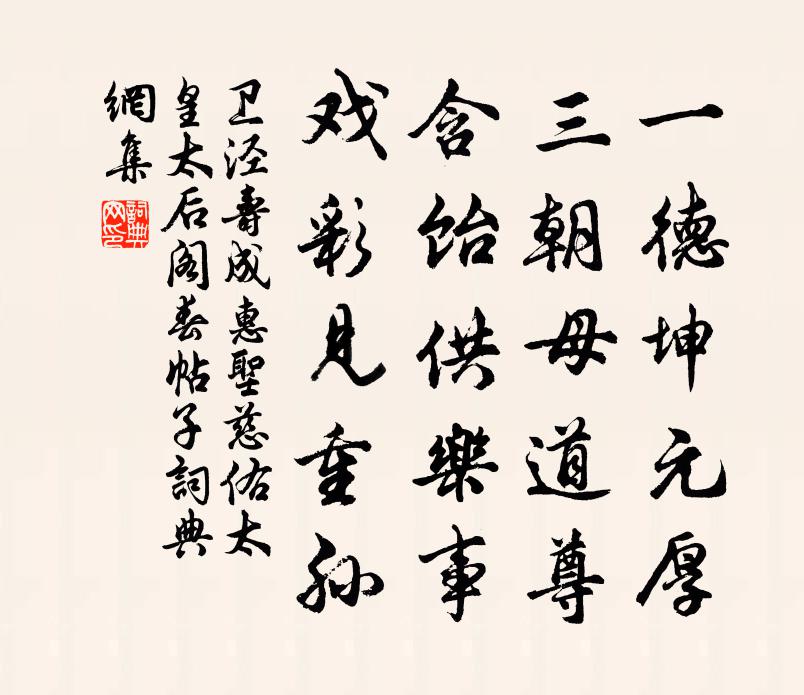 一德坤元厚
三朝母道尊
含饴供樂事
戏彩見重孙
卫泾壽成惠聖慈佑太
皇太后阁春帖子詞典
網集
詞典网印